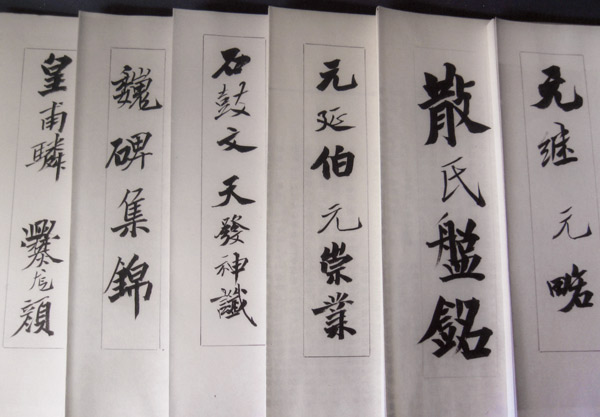 元继 元略
散氏盤銘
元延伯 元崇業
石鼓文 天發神讖
魏碑集錦
皇甫驎 爨龙顏